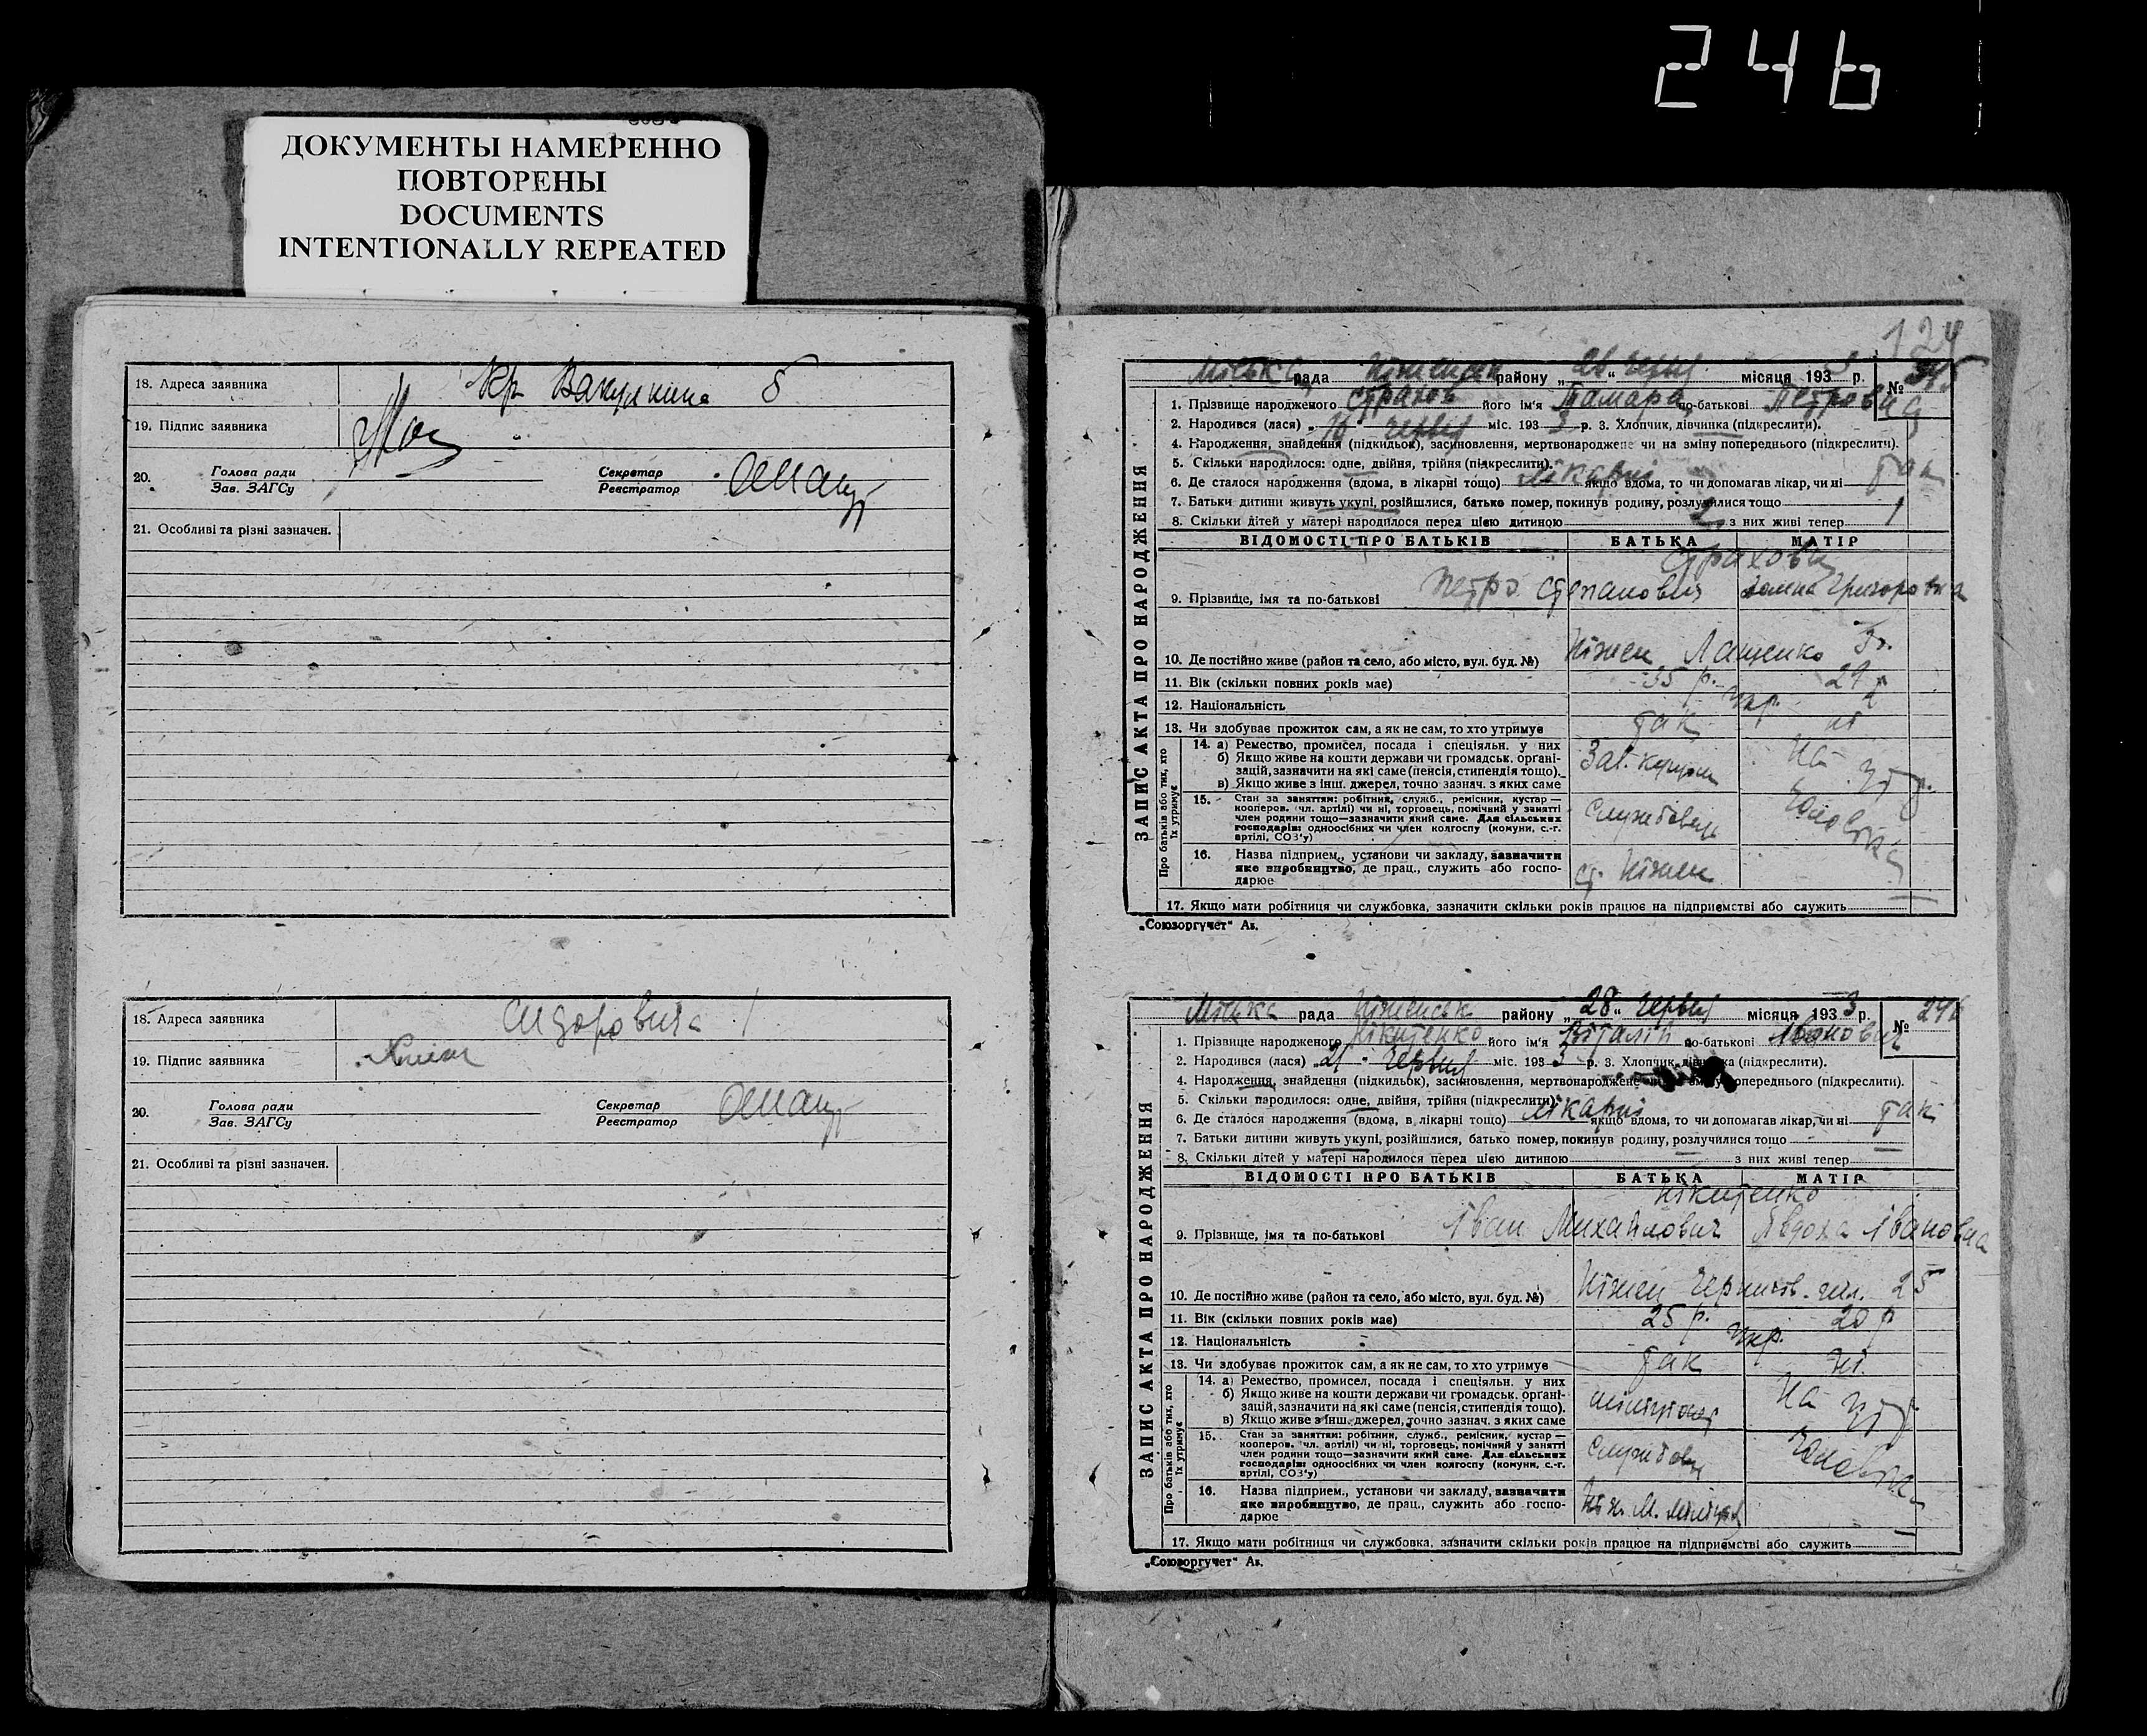 246
ДОКУМЕНТЫ НАМЕРЕННО
ПОВТОРЕНЫ
DOCUMENTS
INTENTIONALLY REPEATED
18. Адреса заявника
19. Підпис заявника
20. Голова ради Секретар
Зав. ЗАГСу Реєстратор
21. Особливі та різні зазначен.
18. Адреса заявника Сидоровича 1
19. Підпис заявника
20. Голова ради Секретар
Зав. ЗАГСу Реєстратор
21. Особливі та різні зазначен.
ЗАПИС АКТА ПРО НАРОДЖЕННЯ
Міська рада Ніженськ району „ 28 “ червня місяця 1933 р. №
1. Прізвище народженого Страхов його ім'я Тамара по-батькові Петровна
2. Народився (лася) „ 16 червня міс. 1933 р. 3. Хлопчик, дівчинка (підкреслити).
4. Народження, знайдення (підкидьок), засиновлення, мертвонароджене чи на зміну попереднього (підкреслити).
5. Скільки народилося: одне, двійня, трійня (підкреслити).
6. Де сталося народження (вдома, в лікарні тощо) лікарні якщо вдома, то чи допомагав лікар, чи ні так
7. Батьки дитини живуть укупі, розійшлися, батько помер, покинув родину, розлучилися тощо
8. Скільки дітей у матері народилося перед цією дитиною 2 з них живі тепер 1
ВІДОМОСТІ ПРО БАТЬКІВ БАТЬКА МАТІР
Страхови
9. Прізвище, імя та по-батькові Петро Степанович Григоровна
10. Де постійно живе (район та село, або місто, вул. буд. №) Ніжен Лащенко
11. Вік (скільки повних років має) 35 р. 27 р
12. Національність Укр.
13. Чи здобуває прожиток сам, а як не сам, то хто утримує так ні
Про батьків або тих, хто їх утримує
14. а) Ремество, промисел, посада і спеціяльн. у них
б) Якщо живе на кошти держави чи громадськ. органі-
зацій, зазначити на які саме (пенсія, стипендія тощо).
в) Якщо живе з інш. джерел, точно зазнач. з яких саме
Зав. На утр.
15. Стан за заняттям: робітник, служб., ремісник, кустар —
кооперов. (чл. артілі) чи ні, торговець, помічний у занятті
член родини тощо—зазначити який саме. Для сільських
господарів: одноосібних чи член колгоспу (комуни, с.-г.
артілі, СОЗ'у)
Службовець Чоловіка
16. Назва підприєм., установи чи закладу, зазначити
яке виробництво, де прац., служить або госпо-
дарює
ст. Ніжен
17. Якщо мати робітниця чи службовка, зазначити скільки років працює на підприємстві або служить
„Союзоргучет“ Ав.
ЗАПИС АКТА ПРО НАРОДЖЕННЯ
Міська рада Ніженськ району „ 28 “ червня місяця 1933 р. № 246
1. Прізвище народженого Нікитенко його ім'я Віталій по-батькові Іванович
2. Народився (лася) „ 21 червня міс. 1933 р. 3. Хлопчик, дівчинка (підкреслити).
4. Народження, знайдення (підкидьок), засиновлення, мертвонароджене попереднього (підкреслити).
5. Скільки народилося: одне, двійня, трійня (підкреслити).
6. Де сталося народження (вдома, в лікарні тощо) лікарні якщо вдома, то чи допомагав лікар, чи ні так
7. Батьки дитини живуть укупі, розійшлися, батько помер, покинув родину, розлучилися тощо
8. Скільки дітей у матері народилося перед цією дитиною — з них живі тепер —
ВІДОМОСТІ ПРО БАТЬКІВ БАТЬКА МАТІР
Нікитенко
9. Прізвище, імя та по-батькові Іван Михайлович Явдоха Івановна
10. Де постійно живе (район та село, або місто, вул. буд. №) Ніжен Чернигів. 25
11. Вік (скільки повних років має) 25 р. 20 р
12. Національність Укр.
13. Чи здобуває прожиток сам, а як не сам, то хто утримує так ні.
Про батьків або тих, хто їх утримує
14. а) Ремество, промисел, посада і спеціяльн. у них
б) Якщо живе на кошти держави чи громадськ. органі-
зацій, зазначити на які саме (пенсія, стипендія тощо).
в) Якщо живе з інш. джерел, точно зазнач. з яких саме
На утр.
15. Стан за заняттям: робітник, служб., ремісник, кустар —
кооперов. (чл. артілі) чи ні, торговець, помічний у занятті
член родини тощо—зазначити який саме. Для сільських
господарів: одноосібних чи член колгоспу (комуни, с.-г.
артілі, СОЗ'у)
16. Назва підприєм., установи чи закладу, зазначити
яке виробництво, де прац., служить або госпо-
дарює
17. Якщо мати робітниця чи службовка, зазначити скільки років працює на підприємстві або служить
„Союзоргучет“ Ав.